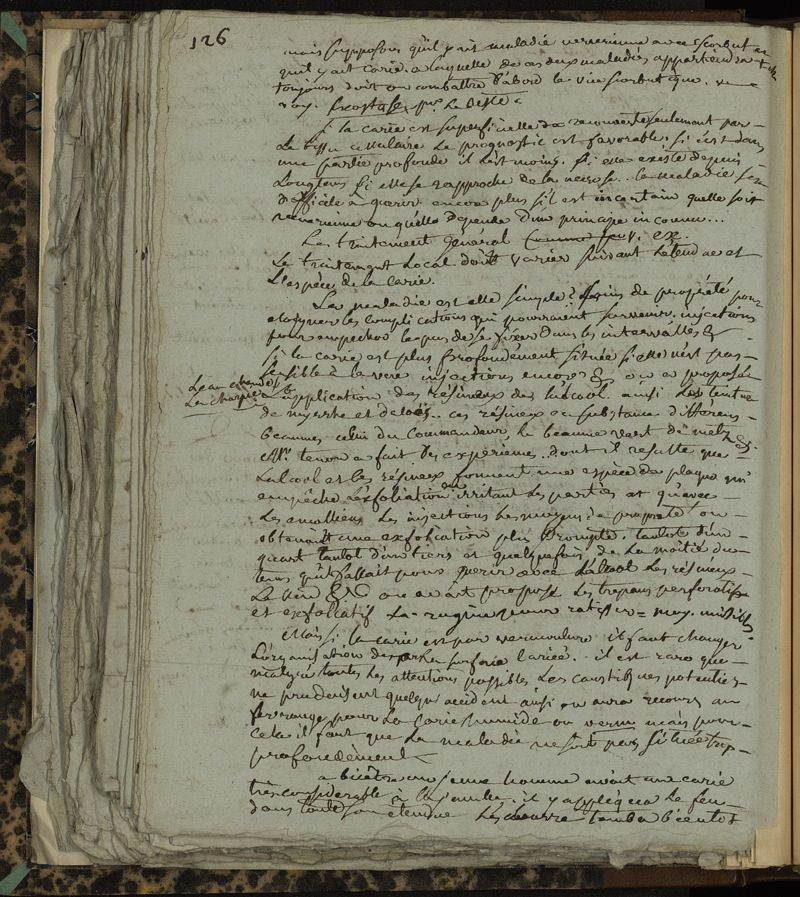 126
mais supposons qu'il y ait maladie venerienne avec scorbut et
qu'il y ait carie. a laquelle de ces deux maladies appartiendra t elle
toujours doit on combattre d'abord le vice scorbutique.
voy. Exostose,
Si la carie est superficielle da recouverte seulement par
Le tissu cellulaire Le prognostic est favorable. si c'est dans
une partie profonde il l'est moins. Si elle existe depuis
Longtems si elle se rapproche de la necrose.. la maladie sera
difficile à guerir encore plus s'il est incertain qu'elle soit
venerienne ou qu'elle depende d'un principe inconnu...
Le traitement general
Le traitement Local doit varier suivant L'etendue et
L'espèce de la carie.
La maladie est elle simple? soins de propreté pour
eloigner les complications qui pourroient survenir. injections
pour empecher le pus de se fixer dans les intervalles &
Si la carie est plus profondement située si elle n'est pas
sensible à la vue injections encore &. on a proposé
L'eau
La charpie
L'application des résineux de L'alcool. ainsi Les teintures
de myrrhe et d'aloës. ces résineux ou substances différens
beaumes celui du Commandeur, le beaume vert de metz &.
Mr. tenon a fait des experiences. dont il resulte que
L'alcool et les résineux forment une espèce de plaque qui
empêche L'exfoliation en irritant Les parties et qu'avec
Les emolliens Les injections Les moyens de propreté on
obtenoit une exfoliation plus prompte. tantot d'un
quart tantot d'un tiers et quelquefois de La moitié du
tems qu'il fallait pour guerir avec L'alcool Les résineux
on avoit proposé Les trepans perforatifs
et exfoliatif La rugine pour ratisser = moy. inutiles
Mais si la carie est par vermoulure il faut changer
L'organisation des parties surface cariée. il est rare que
malgré toutes Les attentions possibles Les caustiques potentiels
ne produisent quelqu'accident aussi on aura recours au
fer rouge pour La carie humide ou verm mais pour
cela il faut que La maladie ne soit pas située trop
profondement
a bicêtre un jeune homme avoit une carie
très considerable à La jambe. il y appliqua Le feu
dans toute son etendue Les tomba bientot